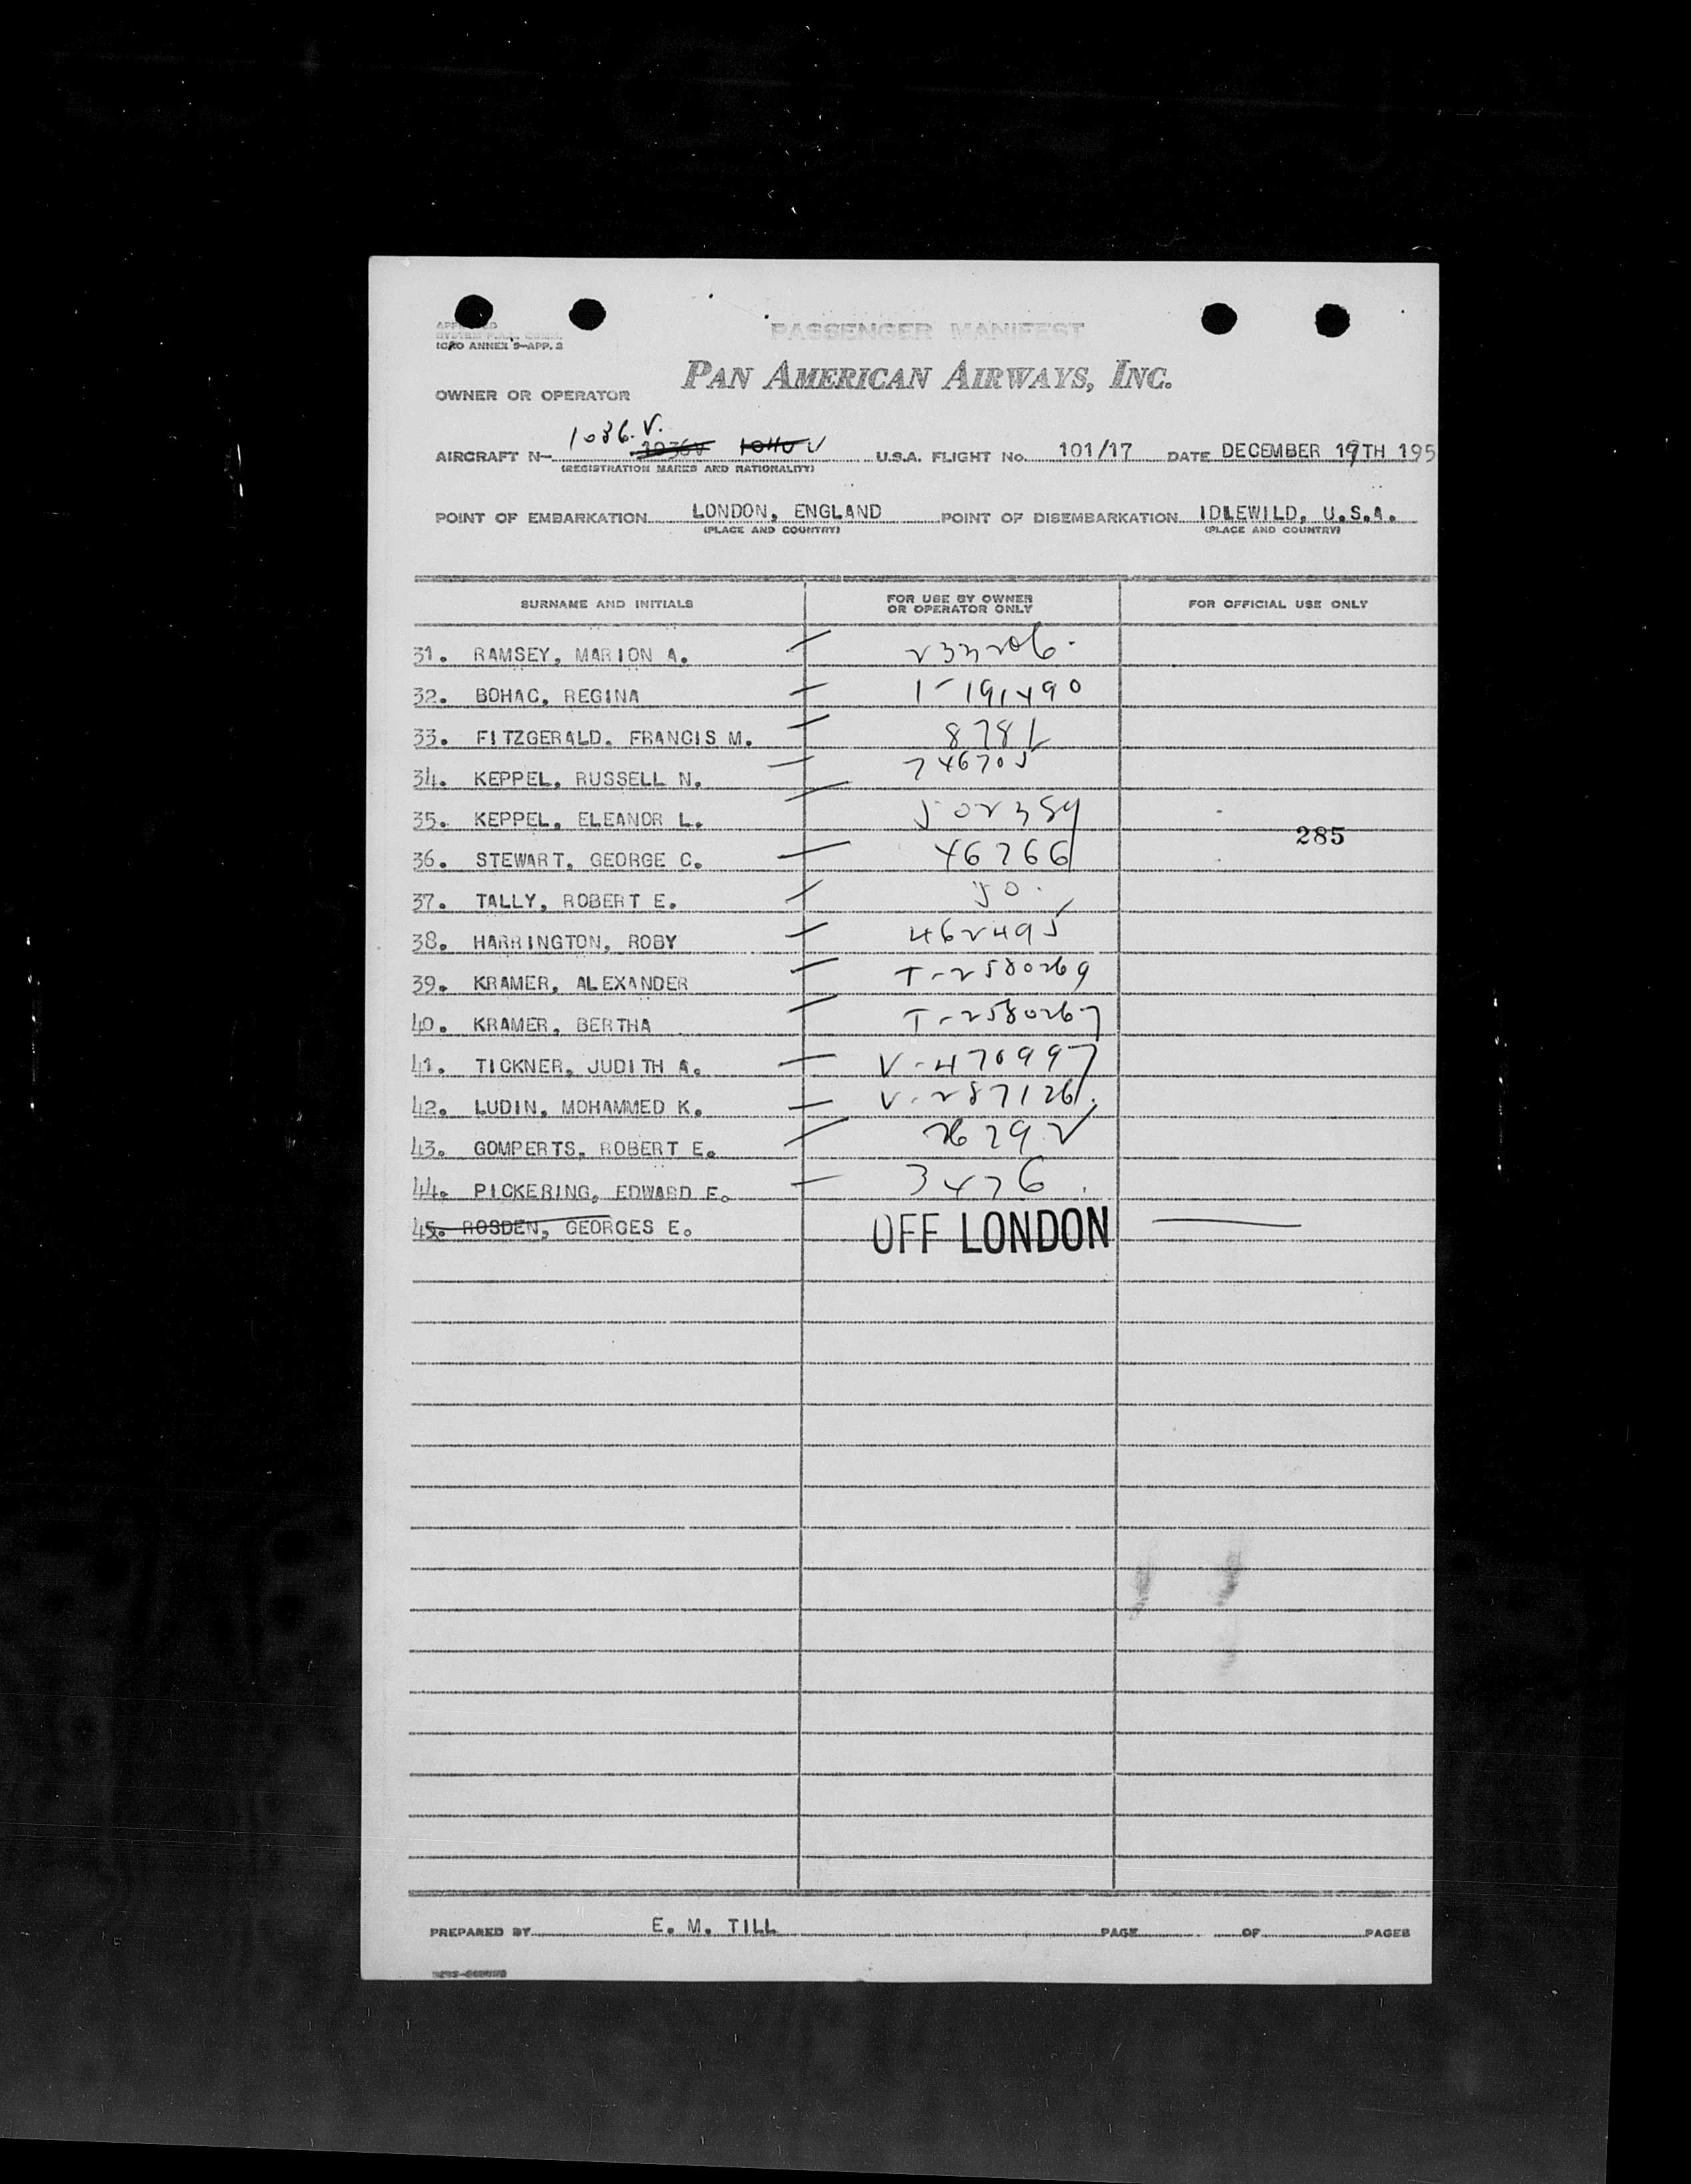 PASSENGER MANIFEST
ICAO ANNEX 9-APP. 2
PAN AMERICAN AIRWAYS, INC.
OWNER OR OPERATOR
1036.V.
AIRCRAFT N- 1036V 1040V U.S.A. FLIGHT No. 101/17 DATE DECEMBER 19TH 195
(REGISTRATION MARKS AND NATIONALITY)
POINT OF EMBARKATION LONDON, ENGLAND POINT OF DISEMBARKATION IDLEWILD, U.S.A.
(PLACE AND COUNTRY) (PLACE AND COUNTRY)
SURNAME AND INITIALS FOR USE BY OWNER OR OPERATOR ONLY FOR OFFICIAL USE ONLY
31. RAMSEY, MARION A. 233206.
32. BOHAC, REGINA 1-191490
33. FITZGERALD, FRANCIS M. 8781
34. KEPPEL, RUSSELL N. 746705
35. KEPPEL, ELEANOR L. 502359
285
36. STEWART, GEORGE C. 46766
37. TALLY, ROBERT E. 50.
38. HARRINGTON, ROBY 462495
39. KRAMER, ALEXANDER T-2580269
40. KRAMER, BERTHA T-2580267
41. TICKNER, JUDITH A. V-470997
42. LUDIN, MOHAMMED K. V-287126.
43. GOMPERTS, ROBERT E. 26292
44. PICKERING, EDWARD E. 3476.
45. ROSDEN, GEORGES E. OFF LONDON
PREPARED BY E. M. TILL PAGE OF PAGES